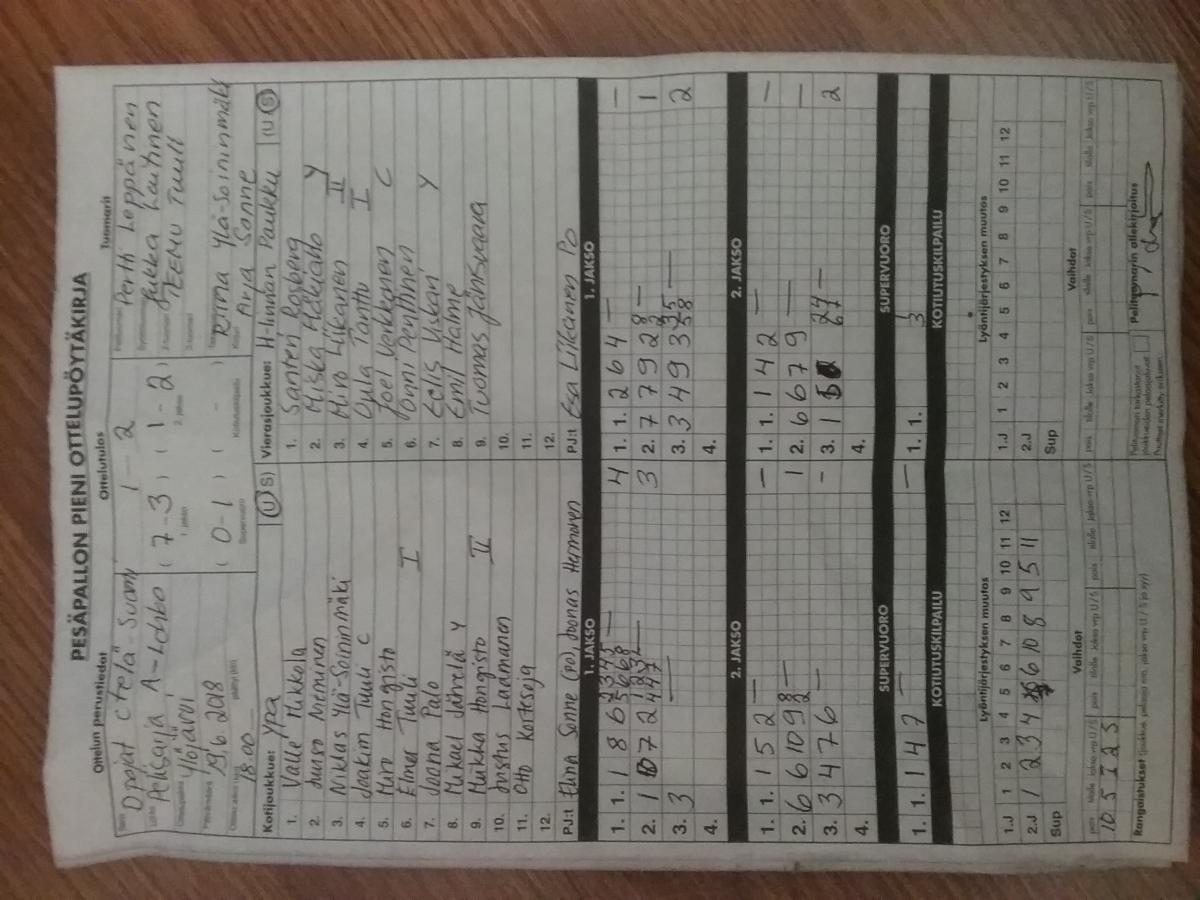 PESÄPALLON PIENI OTTELUPÖYTÄKIRJA
Ottelun perustiedot Ottelutulos Tuomarit
Sarja D pojat Etelä-Suomi 1 - 2 Pelituomari Pertti Leppänen
Lohko Pelisarja A-Lohko ( 7 - 3 ) ( 1 - 2 ) Syöttötuomari Jukka Lauhnen
1. jakso 2. jakso
Ottelupaikka Ylöjärvi 2-tuomari TEEMU Tuuli
Päivämäärä 19.6.2018 ( 0 - 1 ) ( - ) 3-tuomari
Supervuoro Kotiutuskilpailu
Ottelu alkoi (klo) 18.00 päättyi (klo) Riina Ylä-Soininmäki
Kirjuri Arja Sonne
Kotijoukkue: YPA (U S) Vierasjoukkue: H-linnan Paukku (U S)
1. Valle Mikkola 1. Santeri Rosberg
2. Juuso Nieminen 2. Miska Adelaho Y
3. Niklas Ylä-Soininmäki 3. Miro Liikanen II
4. Joakim Tuuli C 4. Tanttu I
5. Miro Hongisto 5. Joel Verkkonen C
6. Elmer Tuuli I 6. Onni Penttinen
7. Joona Palo 7. Eelis Uskari Y
8. Mikael Järvelä Y 8. Emil Halme
9. Miikka Hongisto II 9. Tuomas Jäntsvaara
10. Justus Laamanen 10.
11. Otto Korteseoja 11.
12. 12.
PJ:t Elina Sonne (po), Joonas Hermonen PJ:t Esa Liikanen Po
1. JAKSO 1. JAKSO
1. 1. 1 8 6 — 4 1. 1. 2 6 4 — —
2. 1 7 2 3 2. 7 7 9 2 8 — 1
3. 3 — 3. 3 4 9 3 — 2
4. 4.
2. JAKSO 2. JAKSO
1. 1. 1 5 2 — — 1. 1. 1 4 2 — —
2. 6 6 10 9 2 8 — 1 2. 6 6 7 9 — —
3. 3 4 7 6 — - 3. 1 — 2
4. 4.
SUPERVUORO SUPERVUORO
1. 1. 1 4 7 — — 1. 1. 3
KOTIUTUSKILPAILU KOTIUTUSKILPAILU
Lyöntijärjestyksen muutos Lyöntijärjestyksen muutos
1.J 1 2 3 4 5 6 7 8 9 10 11 12 1.J 1 2 3 4 5 6 7 8 9 10 11 12
2.J 1 2 3 4 6 10 8 9 5 11 2.J
Sup Sup
Vaihdot Vaihdot
pois sisälle Jakso vrp U/S pois sisälle Jakso vrp U/S pois sisälle Jakso vrp U/S pois sisälle Jakso vrp U/S
10 5 I 2 S
Rangaistukset (joukkue, pelaaja nro, jakso vrp U / S ja syy) Pelituomarin allekirjoitus